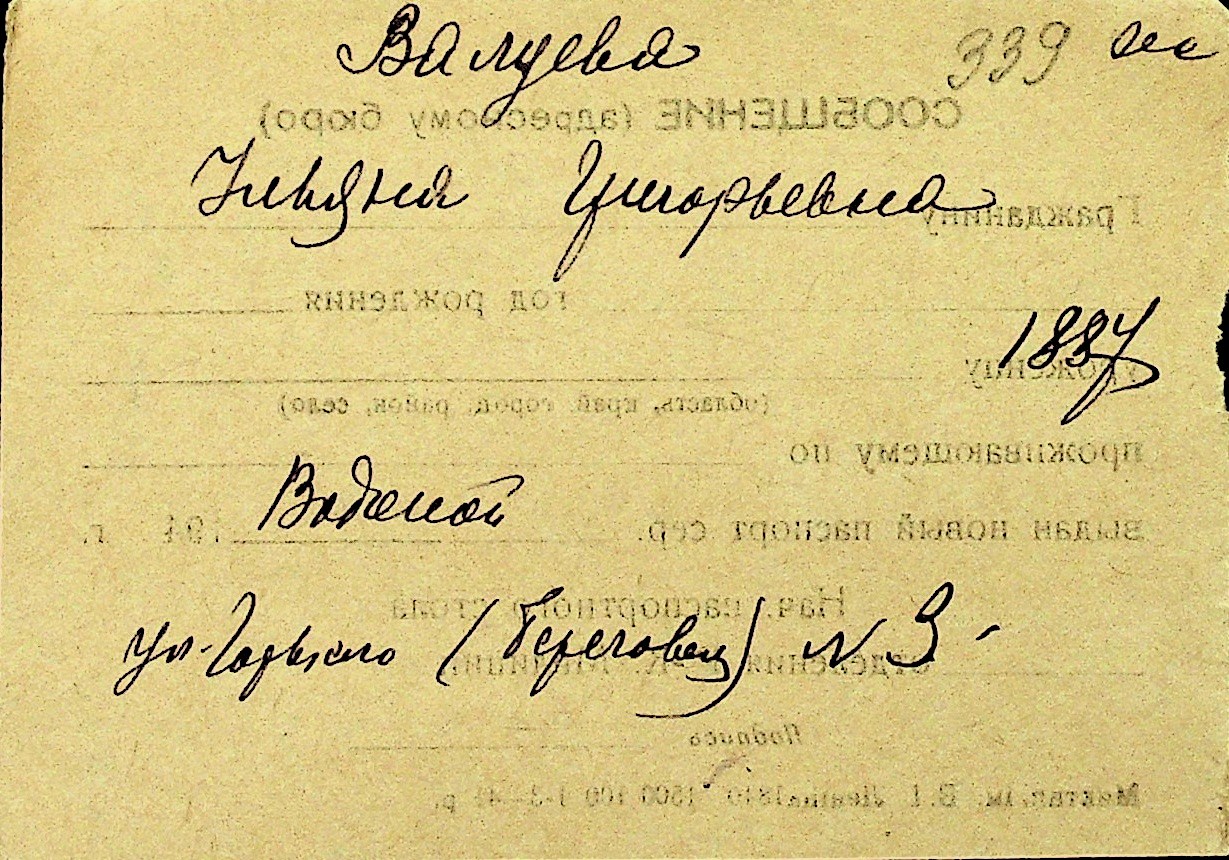 Валуева 339
СООБЩЕНИЕ (адресному бюро)
Ульяна Григорьевна
Гражданину
год рождения
1887
уроженцу
(область, край, город, район, село)
проживающему по
Водяной
выдан новый паспорт сер. 194 г.
Нач. паспортного стола
ул. Горького (Береговая) N 3
отделения милиции
Подпись